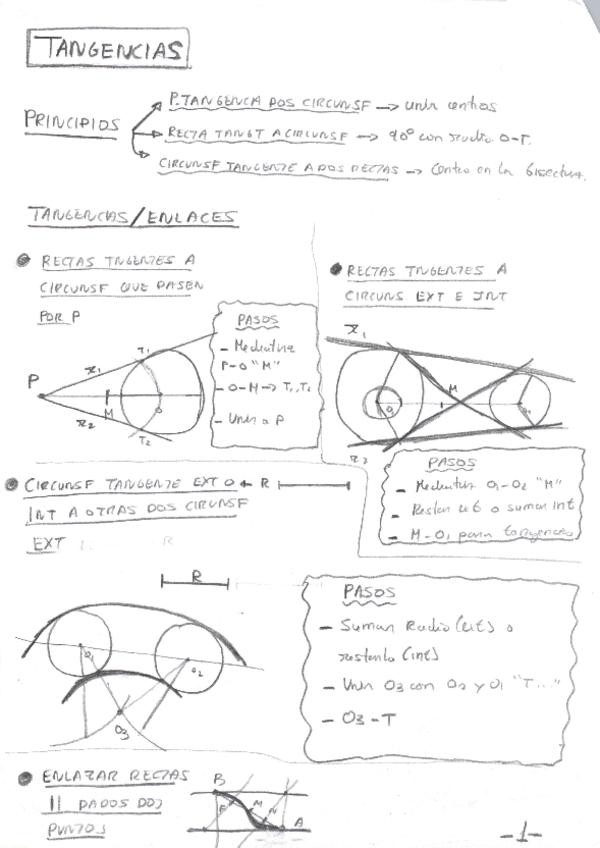 TANGENCIAS
PRINCIPIOS
P. TANGENCIA DOS CIRCUNSF → unir centros
RECTA TANGT A CIRCUNSF → 90° con radio O-T.
CIRCUNSF TANGENTE A DOS RECTAS → Centro en la bisectriz.
TANGENCIAS/ENLACES
RECTAS TNGENTES A
CIRCUNSF QUE PASEN
POR P
PASOS
- Mediatriz
P-O "M"
- O-M → T1, T2
- Unir a P
P
r1
T1
M
O
r2
T2
RECTAS TNGENTES A
CIRCUNS EXT E INT
r1
M
O1
O2
r2
PASOS
- Mediatriz O1-O2 "M"
- Restar ext o sumar int
- M-O1 para tangencias
CIRCUNSF TANGENTE EXT O
INT A OTRAS DOS CIRUNSF
EXT
R
R
O1
O2
O3
PASOS
- Sumar Radio (ext) o
restarlo (int)
- Unir O3 con O2 y O1 "T..."
- O3-T
ENLAZAR RECTAS
|| DADOS DOS
PUNTOS
B
M
N
A
-1-